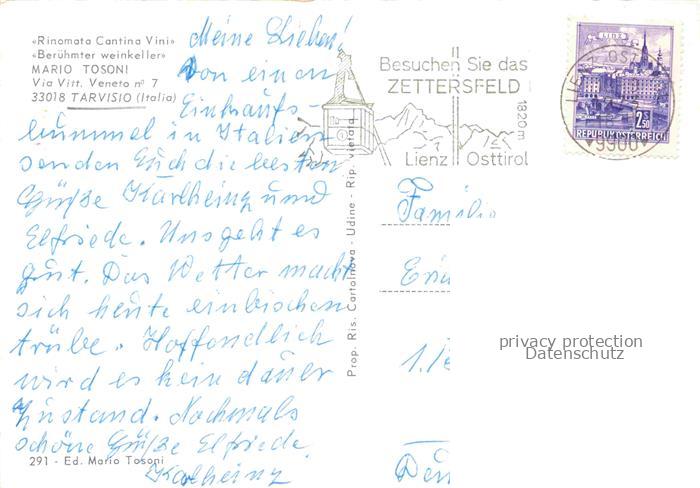 «Rinomata Cantina Vini»
«Berühmter weinkeller»
MARIO TOSONI
Via Vitt. Veneto nº 7
33018 TARVISIO (Italia)
Meine Lieben!
Von einem
Einkaufs-
bummel in Italien
senden Euch die besten
Grüße Karlheinz und
Elfriede. Uns geht es
gut. Das Wetter macht
sich heute ein bischen
trübe. Hoffendlich
wird es kein dauer
Zustand. Nochmals
schöne Grüße Elfriede
Karlheinz
291 - Ed. Mario Tosoni
Prop. Ris. Cartolnova - Udine - Rip. vietata
Besuchen Sie das
ZETTERSFELD
1820m
Lienz Osttirol
LINZ
2.50
REPUBLIK ÖSTERREICH
9900
Familie
privacy protection
Datenschutz